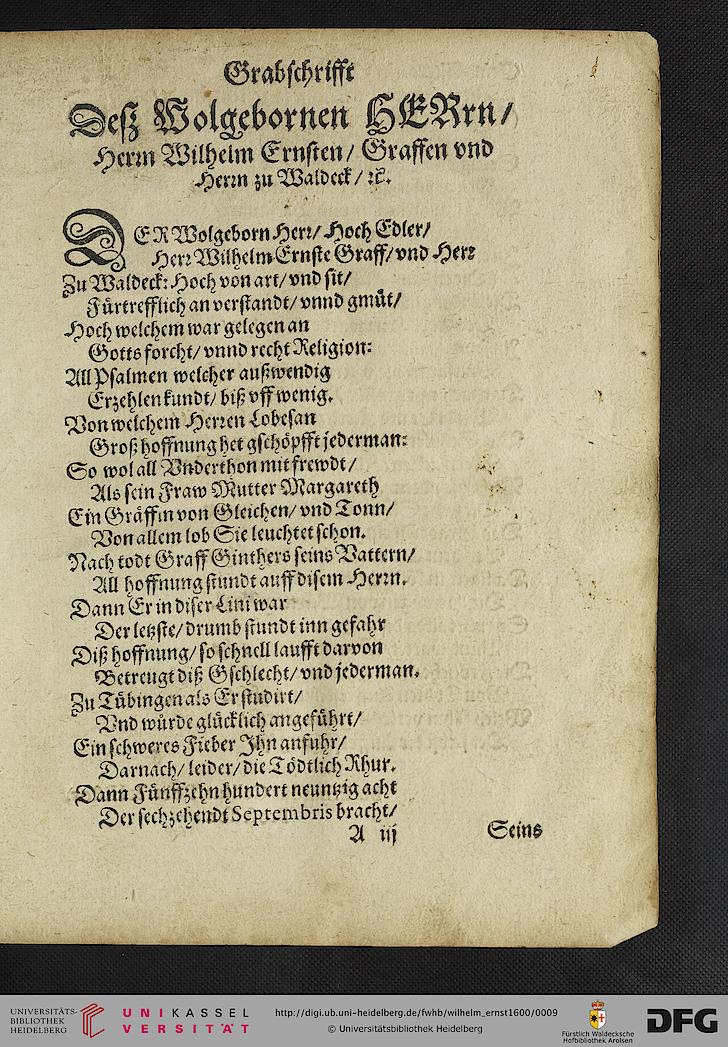 1
Grabschrifft
Deß Wolgebornen HERrn/
Herrn Wilhelm Ernsten/ Graffen vnd
Herrn zu Waldeck/ ꝛc.
DER Wolgeborn Herr/ Hoch Edler/
Herr Wilhelm Ernste Graff/ vnd Herr
Zu Waldeck: Hoch von art/ vnd sit/
Fürtrefflich an verstandt/ vnnd gmüt/
Hoch welchem war gelegen an
Gotts forcht/ vnnd recht Religion:
All Psalmen welcher außwendig
Erzehlen kundt/ biß vff wenig.
Von welchem Herren Lobesan
Groß hoffnung het gschöpfft jederman:
So wol all Vnderthon mit frewdt/
Als sein Fraw Mutter Margareth
Ein Gräffin von Gleichen/ vnd Tonn/
Von allem lob Sie leuchtet schon.
Nach todt Graff Ginthers seins Vattern/
All hoffnung stundt auff disem Herrn.
Dann Er in diser Lini war
Der letste/ drumb stundt inn gefahr
Diß hoffnung/ so schnell laufft darvon
Betreugt diß Gschlecht/ vnd jederman.
Zu Tübingen als Er studirt/
Vnd würde glücklich angeführt/
Ein schweres Fieber Ihn anfuhr/
Darnach/ leider/ die Tödtlich Rhur.
Dann Fünffzehn hundert neuntzig acht
Der sechzehendt Septembris bracht/
A iij
Seins
UNIVERSITÄTS-
BIBLIOTHEK
HEIDELBERG
UNIKASSEL
VERSITÄT
http://digi.ub.uni-heidelberg.de/fwhb/wilhelm_ernst1600/0009
© Universitätsbibliothek Heidelberg
Fürstlich Waldecksche
Hofbibliothek Arolsen
DFG